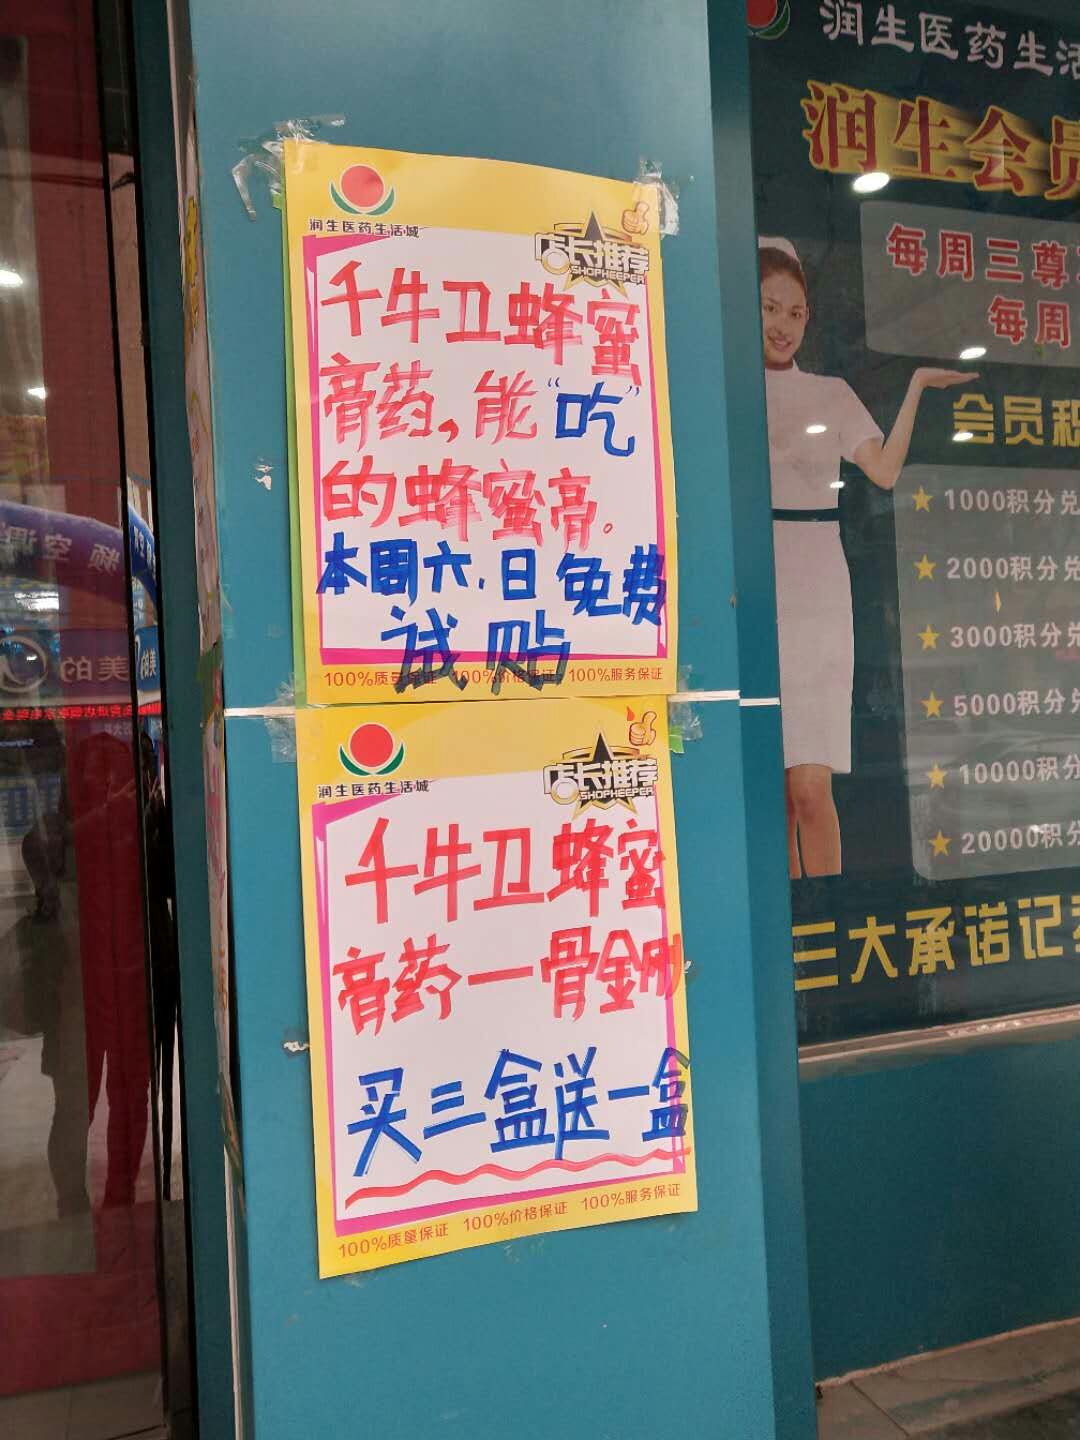 润生医药生活城
店长推荐
SHOPHEEPER
千牛卫蜂蜜
膏药，能“吃”
的蜂蜜膏。
本周六、日免费
试贴
100%质量保证 100%价格保证 100%服务保证
润生医药生活城
店长推荐
SHOPHEEPER
千牛卫蜂蜜
膏药一骨金刚
买三盒送一盒
100%质量保证 100%价格保证 100%服务保证
润生医药生活
润生会员
每周三尊
每周
会员积
1000积分兑
2000积分兑
3000积分兑
5000积分兑
10000积分
20000积分
三大承诺记
空调
美的